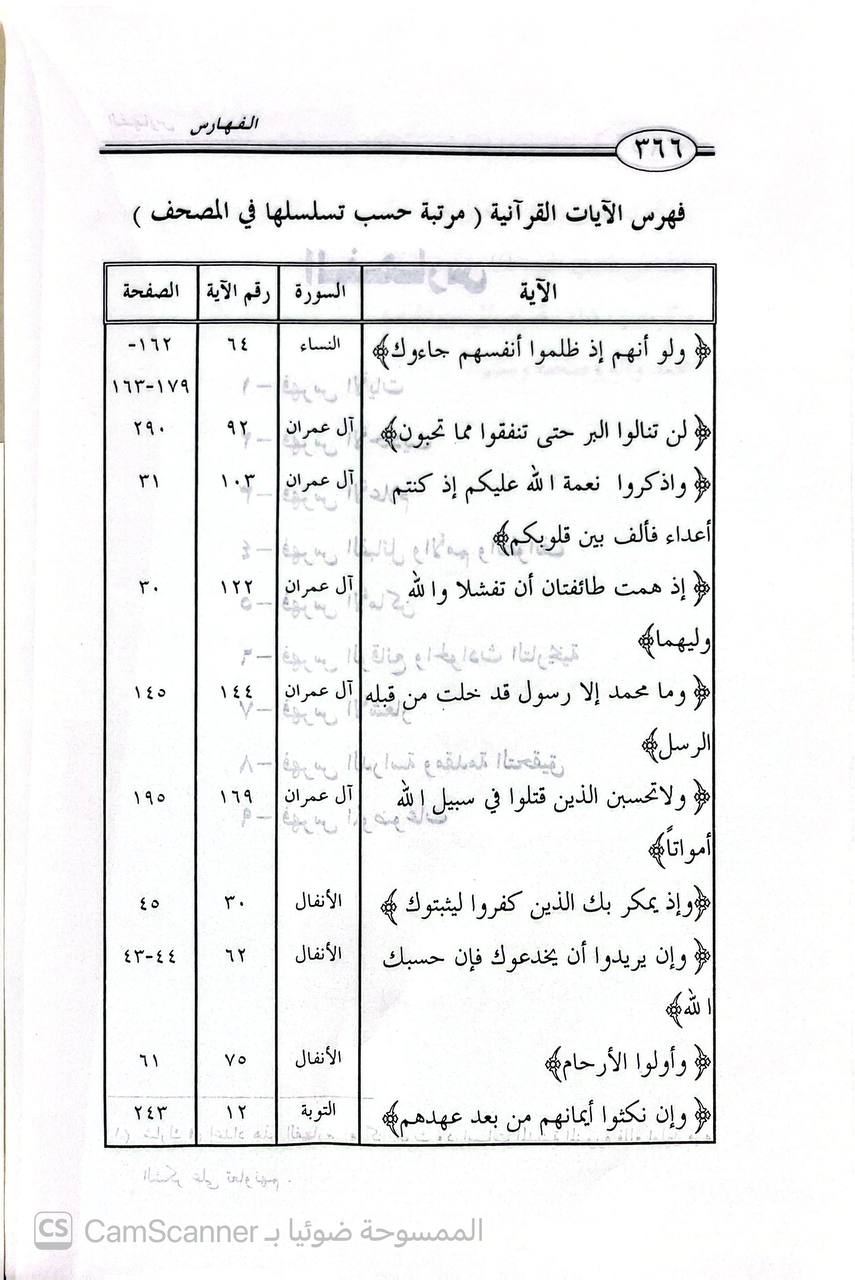 الفهارس
٣٦٦
فهرس الآيات القرآنية ( مرتبة حسب تسلسلها في المصحف )
الآية السورة رقم الآية الصفحة
﴿ ولو أنهم إذ ظلموا أنفسهم جاءوك﴾ النساء ٦٤ ١٦٢-
١٦٣-١٧٩
﴿ لن تنالوا البر حتى تنفقوا مما تحبون﴾ آل عمران ٩٢ ٢٩٠
﴿ واذكروا نعمة الله عليكم إذ كنتم آل عمران ١٠٣ ٣١
أعداء فألف بين قلوبكم﴾
﴿ إذ همت طائفتان أن تفشلا والله آل عمران ١٢٢ ٣٠
وليهما﴾
﴿ وما محمد إلا رسول قد خلت من قبله آل عمران ١٤٤ ١٤٥
الرسل﴾
﴿ ولاتحسبن الذين قتلوا في سبيل الله آل عمران ١٦٩ ١٩٥
أمواتاً﴾
﴿وإذ يمكر بك الذين كفروا ليثبتوك ﴾ الأنفال ٣٠ ٤٥
﴿ وإن يريدوا أن يخدعوك فإن حسبك الأنفال ٦٢ ٤٣-٤٤
الله﴾
﴿ وأولوا الأرحام﴾ الأنفال ٧٥ ٦١
﴿ وإن نكثوا أيمانهم من بعد عهدهم﴾ التوبة ١٢ ٢٤٣
CS الممسوحة ضوئيا بـ CamScanner